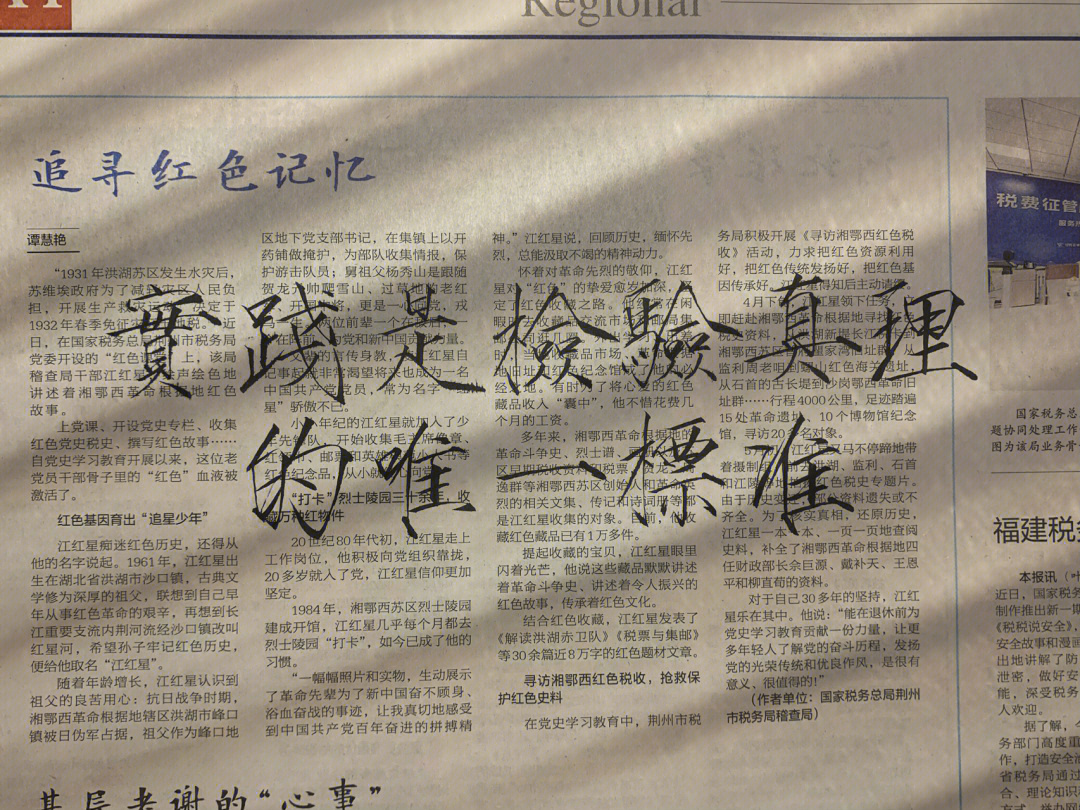 Regional
追寻红色记忆
實踐是檢驗真理
的唯一標准
谭慧艳
“1931年洪湖苏区发生水灾后，
苏维埃政府为了减轻灾区人民负
担，开展生产救灾
1932年春季免征
日，在国家税务总局荆州市税务局
党委开设的“红色 上，该局
稽查局干部江红星 声绘色地
讲述着湘鄂西革命根据地红色
故事。
上党课、开设党史专栏、收集
红色党史税史、撰写红色故事……
自党史学习教育开展以来，这位老
党员干部骨子里的“红色”血液被
激活了。
红色基因育出“追星少年”
江红星痴迷红色历史，还得从
他的名字说起。1961年，江红星出
生在湖北省洪湖市沙口镇，古典文
学修为深厚的祖父，联想到自己早
年从事红色革命的艰辛，再想到长
江重要支流内荆河流经沙口镇改叫
红星河，希望孙子牢记红色历史，
便给他取名“江红星”。
随着年龄增长，江红星认识到
祖父的良苦用心：抗日战争时期，
湘鄂西革命根据地辖区洪湖市峰口
镇被日伪军占据，祖父作为峰口地
区地下党支部书记，在集镇上以开
药铺做掩护，为部队收集情报，保
护游击队员；舅祖父杨秀山是跟随
贺龙元帅爬雪山、过草地的老红
军，开国将 ，更是一 党，戎
马一生。两位前辈一个在
在 党和新中国贡献力量。
的言传身教， 江红星自
记事起就非常渴望将来也成为一名
中国共产党党员，常为名字
星”骄傲不已。
小小年纪的江红星就加入了少
年先锋队，开始收集毛主席像章、
邮票和英雄 书等
红色纪念品，从小就 党
“打卡”烈士陵园三十余年，收
藏万种红物件
20世纪80年代初，江红星走上
工作岗位，他积极向党组织靠拢，
20多岁就入了党，江红星信仰更加
坚定。
1984年，湘鄂西苏区烈士陵园
建成开馆，江红星几乎每个月都去
烈士陵园“打卡”，如今已成了他的
习惯。
“一幅幅照片和实物，生动展示
了革命先辈为了新中国奋不顾身、
浴血奋战的事迹，让我真切地感受
到中国共产党百年奋进的拼搏精
神。”江红星说，回顾历史，缅怀先
烈，总能汲取不竭的精神动力。
怀着对革命先烈的敬仰，江红
星对“红色”的挚爱愈发加深，
定了红色收藏之路。他经常在闲
暇时去收藏品交流市场和邮局集
时，当 收藏品市场、
地旧址 红色纪念馆
经之地。有时为了将心爱的红色
藏品收入“囊中”，他不惜花费几
个月的工资。
多年来，湘鄂西革命根据地的
革命斗争史、烈士谱、
区早期税收资料和税票，贺龙、周
逸群等湘鄂西苏区创始人和革命英
烈的相关文集、传记和诗词册等都
是江红星收集的对象。目前，他收
藏红色藏品已有1万多件。
提起收藏的宝贝，江红星眼里
闪着光芒，他说这些藏品默默讲述
着革命斗争史、讲述着令人振兴的
红色故事，传承着红色文化。
结合红色收藏，江红星发表了
《解读洪湖赤卫队》《税票与集邮》
等30余篇近8万字的红色题材文章。
寻访湘鄂西红色税收，抢救保
护红色史料
在党史学习教育中，荆州市税
务局积极开展《寻访湘鄂西红色税
收》活动，力求把红色资源利用
好，把红色传统发扬好，把红色基
因传承好。江红星得知后主动请缨。
4月下旬，江红星领下任务，
即赶赴湘鄂西革命根据地寻找
税史资料，从洪湖新堤长江
湘鄂西苏区 重家湾旧址群，从
监利周老咀 山红色海关遗址，
从石首的古长堤到沙岗鄂西革命旧
址群……行程4000公里，足迹踏遍
15处革命遗址、10个博物馆纪念
馆，寻访20多名对象。
5月， 又马不停蹄地带
着摄制组，前去洪湖、监利、石首
和江陵等地 红色税史专题片。
由于历史变迁，部分资料遗失或不
齐全。为了核实真相，还原历史，
江红星一本一本、一页一页地查阅
史料，补全了湘鄂西革命根据地四
任财政部长余巨源、戴补天、王恩
平和柳直荀的资料。
对于自己30多年的坚持，江红
星乐在其中。他说：“能在退休前为
党史学习教育贡献一份力量，让更
多年轻人了解党的奋斗历程，发扬
党的光荣传统和优良作风，是很有
意义、很值得的!”
（作者单位：国家税务总局荆州
市税务局稽查局）
税费征管
国家税务总
题协同处理工作
图为该局业务骨
福建税
本报讯（叶
近日，国家税务
制作推出新一期
《税税说安全》，
安全故事和漫画
出地讲解了防
泄密，做好安
能，深受税务
人欢迎。
据了解，今
务部门高度重
作，打造安全活
省税务局通过
合、理论知识
基层老谢的“心事”